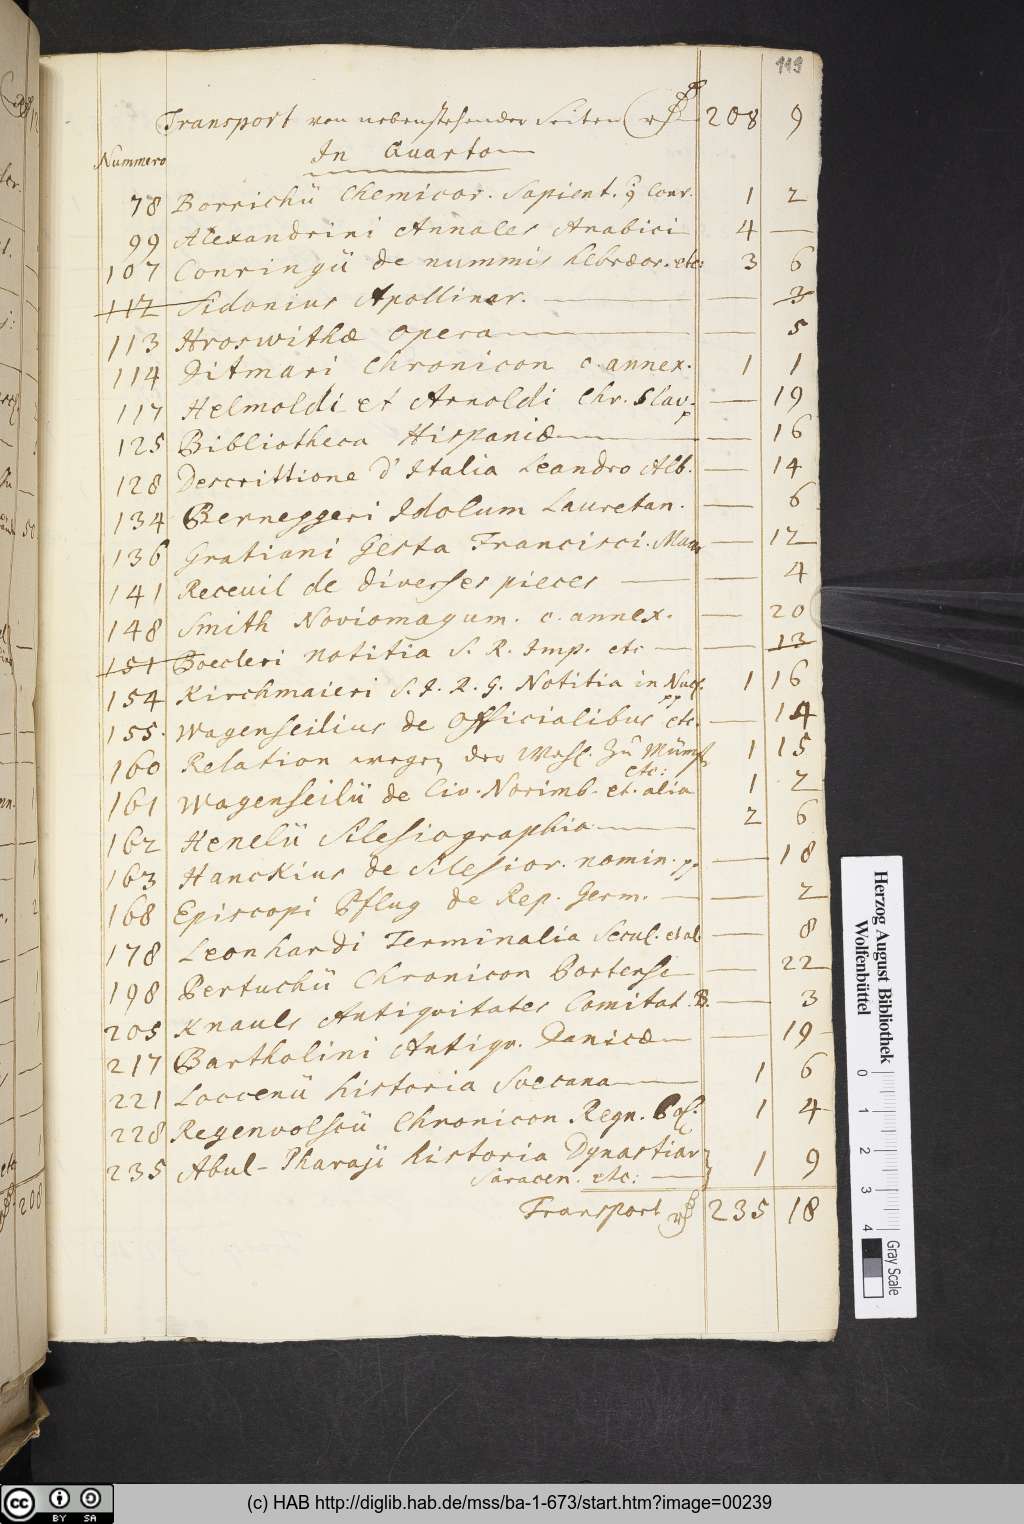 119
Transport von nebenstehender Seiten 208 9
Nummero In Quarto
78 Borrichii Chemicor. Sapient. Conr. 1 2
99 Alexandrini Annales Arabici 4 —
107 Conringii de nummis Hebræor. etc: 3 6
112 Sidonius Apollinar. — 3
113 Hroswithæ opera — 5
114 Ditmari Chronicon c. annex. 1 1
117 Helmoldi et Arnoldi Chr. Slav. — 19
125 Bibliotheca Hispaniæ — 16
128 Descrittione d'Italia Leandro Alb. — 14
134 Berneggeri Idolum Lauretan. — 6
136 Gratiani Gesta Francisci. — 12
141 Receuil de diverses pieces — 4
148 Smith Noviomagum. c. annex. — 20
151 Boecleri notitia S. R. Imp. etc — 13
154 Kirchmaieri S. I. R. G. Notitia in 1 16
155. Wagenseilius de Officialibus etc. — 14
160 Relation wegen der 1 15
etc:
161 Wagenseilii de Civ. Norimb. et. alia 1 2
162 Henelii Silesiographia 2 6
163 Hanckius de Silesior. nomin. — 18
168 Episcopi Pflug de Rep. Germ. — 2
178 Leonhardi Terminalia Secul. et al. — 8
198 Pertuchii Chronicon Portense — 22
205 Knauls Antiqvitates Comitat. B. — 3
217 Bartholini Antiqv. Danicæ — 19
221 Loccenii historia Svecana 1 6
228 Regenvolscii Chronicon Regn. 1 4
235 Abul-Pharaji historia Dynastiar
Saracen. etc: 1 9
Transport 235 18
208
Herzog August Bibliothek
Wolfenbüttel
0 1 2 3 4
Gray Scale
cc BY SA
(c) HAB http://diglib.hab.de/mss/ba-1-673/start.htm?image=00239